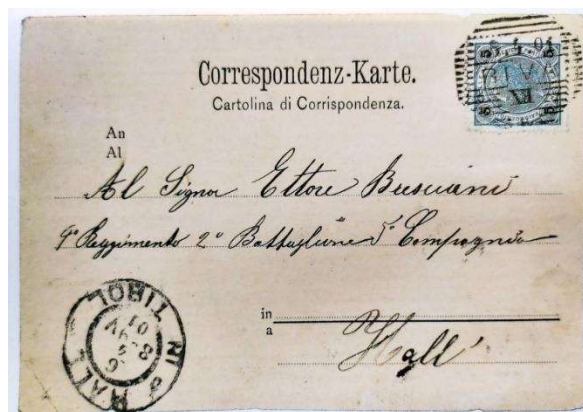 Correspondenz-Karte.
Cartolina di Corrispondenza.
An
Al
Al Signor Ettore Bresciani
Reggimento 2° Battaglione 5° Compagnia
in
a
Hall
RIVA
HALL IN TIROL